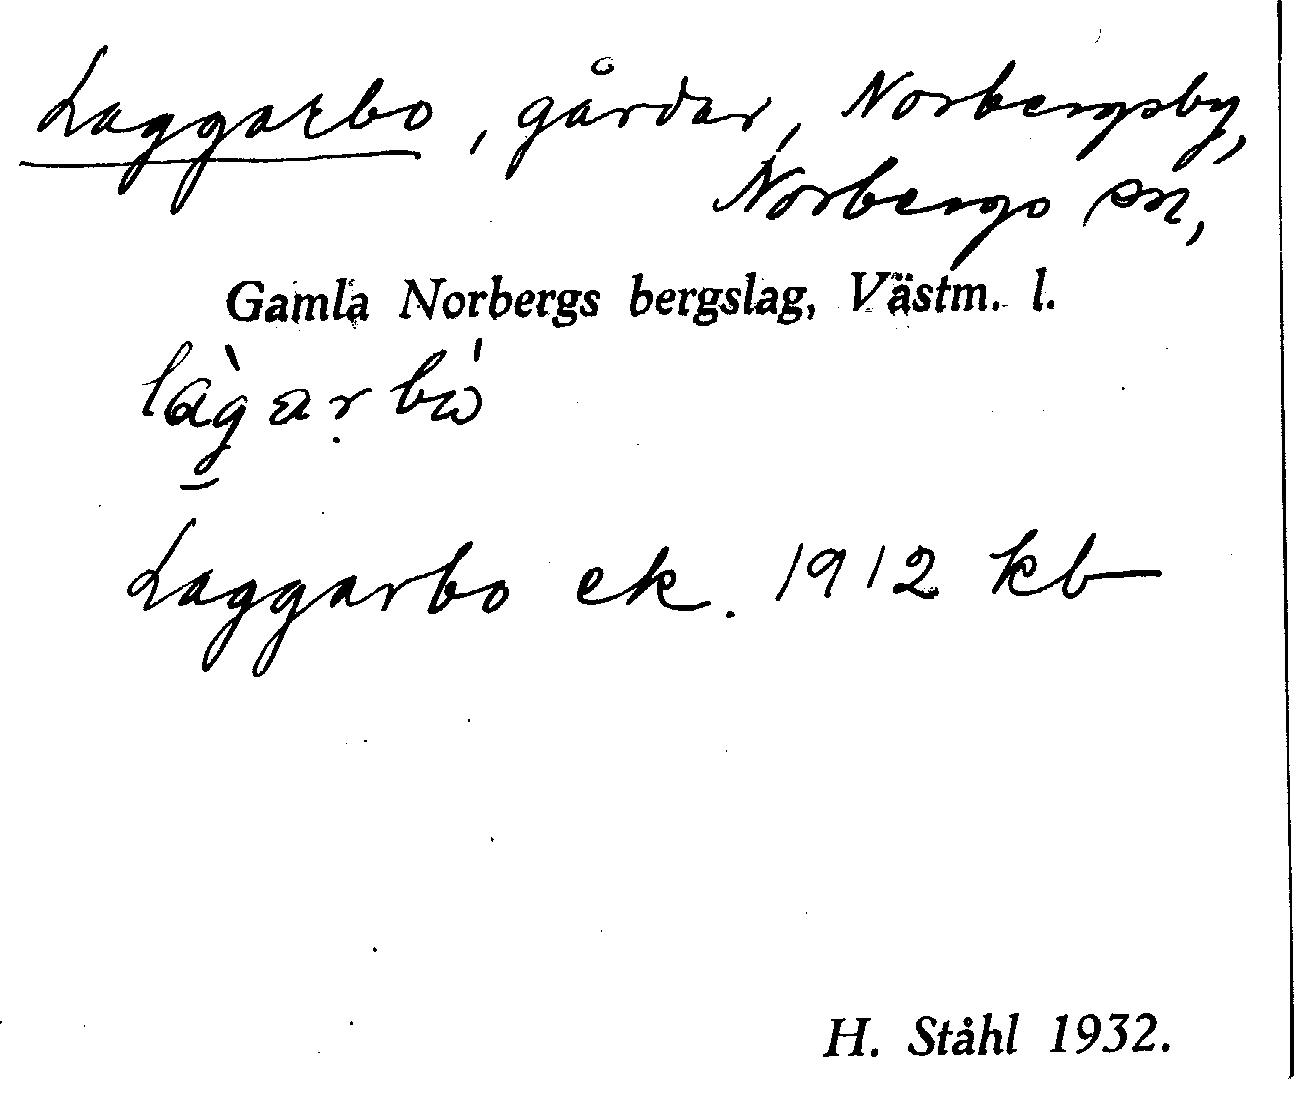 Laggarbo, gårdar, Norbergsby,
Norbergs sn,
Gamla Norbergs bergslag, Västm. l.
làgarbó
Laggarbo ek. 1912 kb
H. Ståhl 1932.